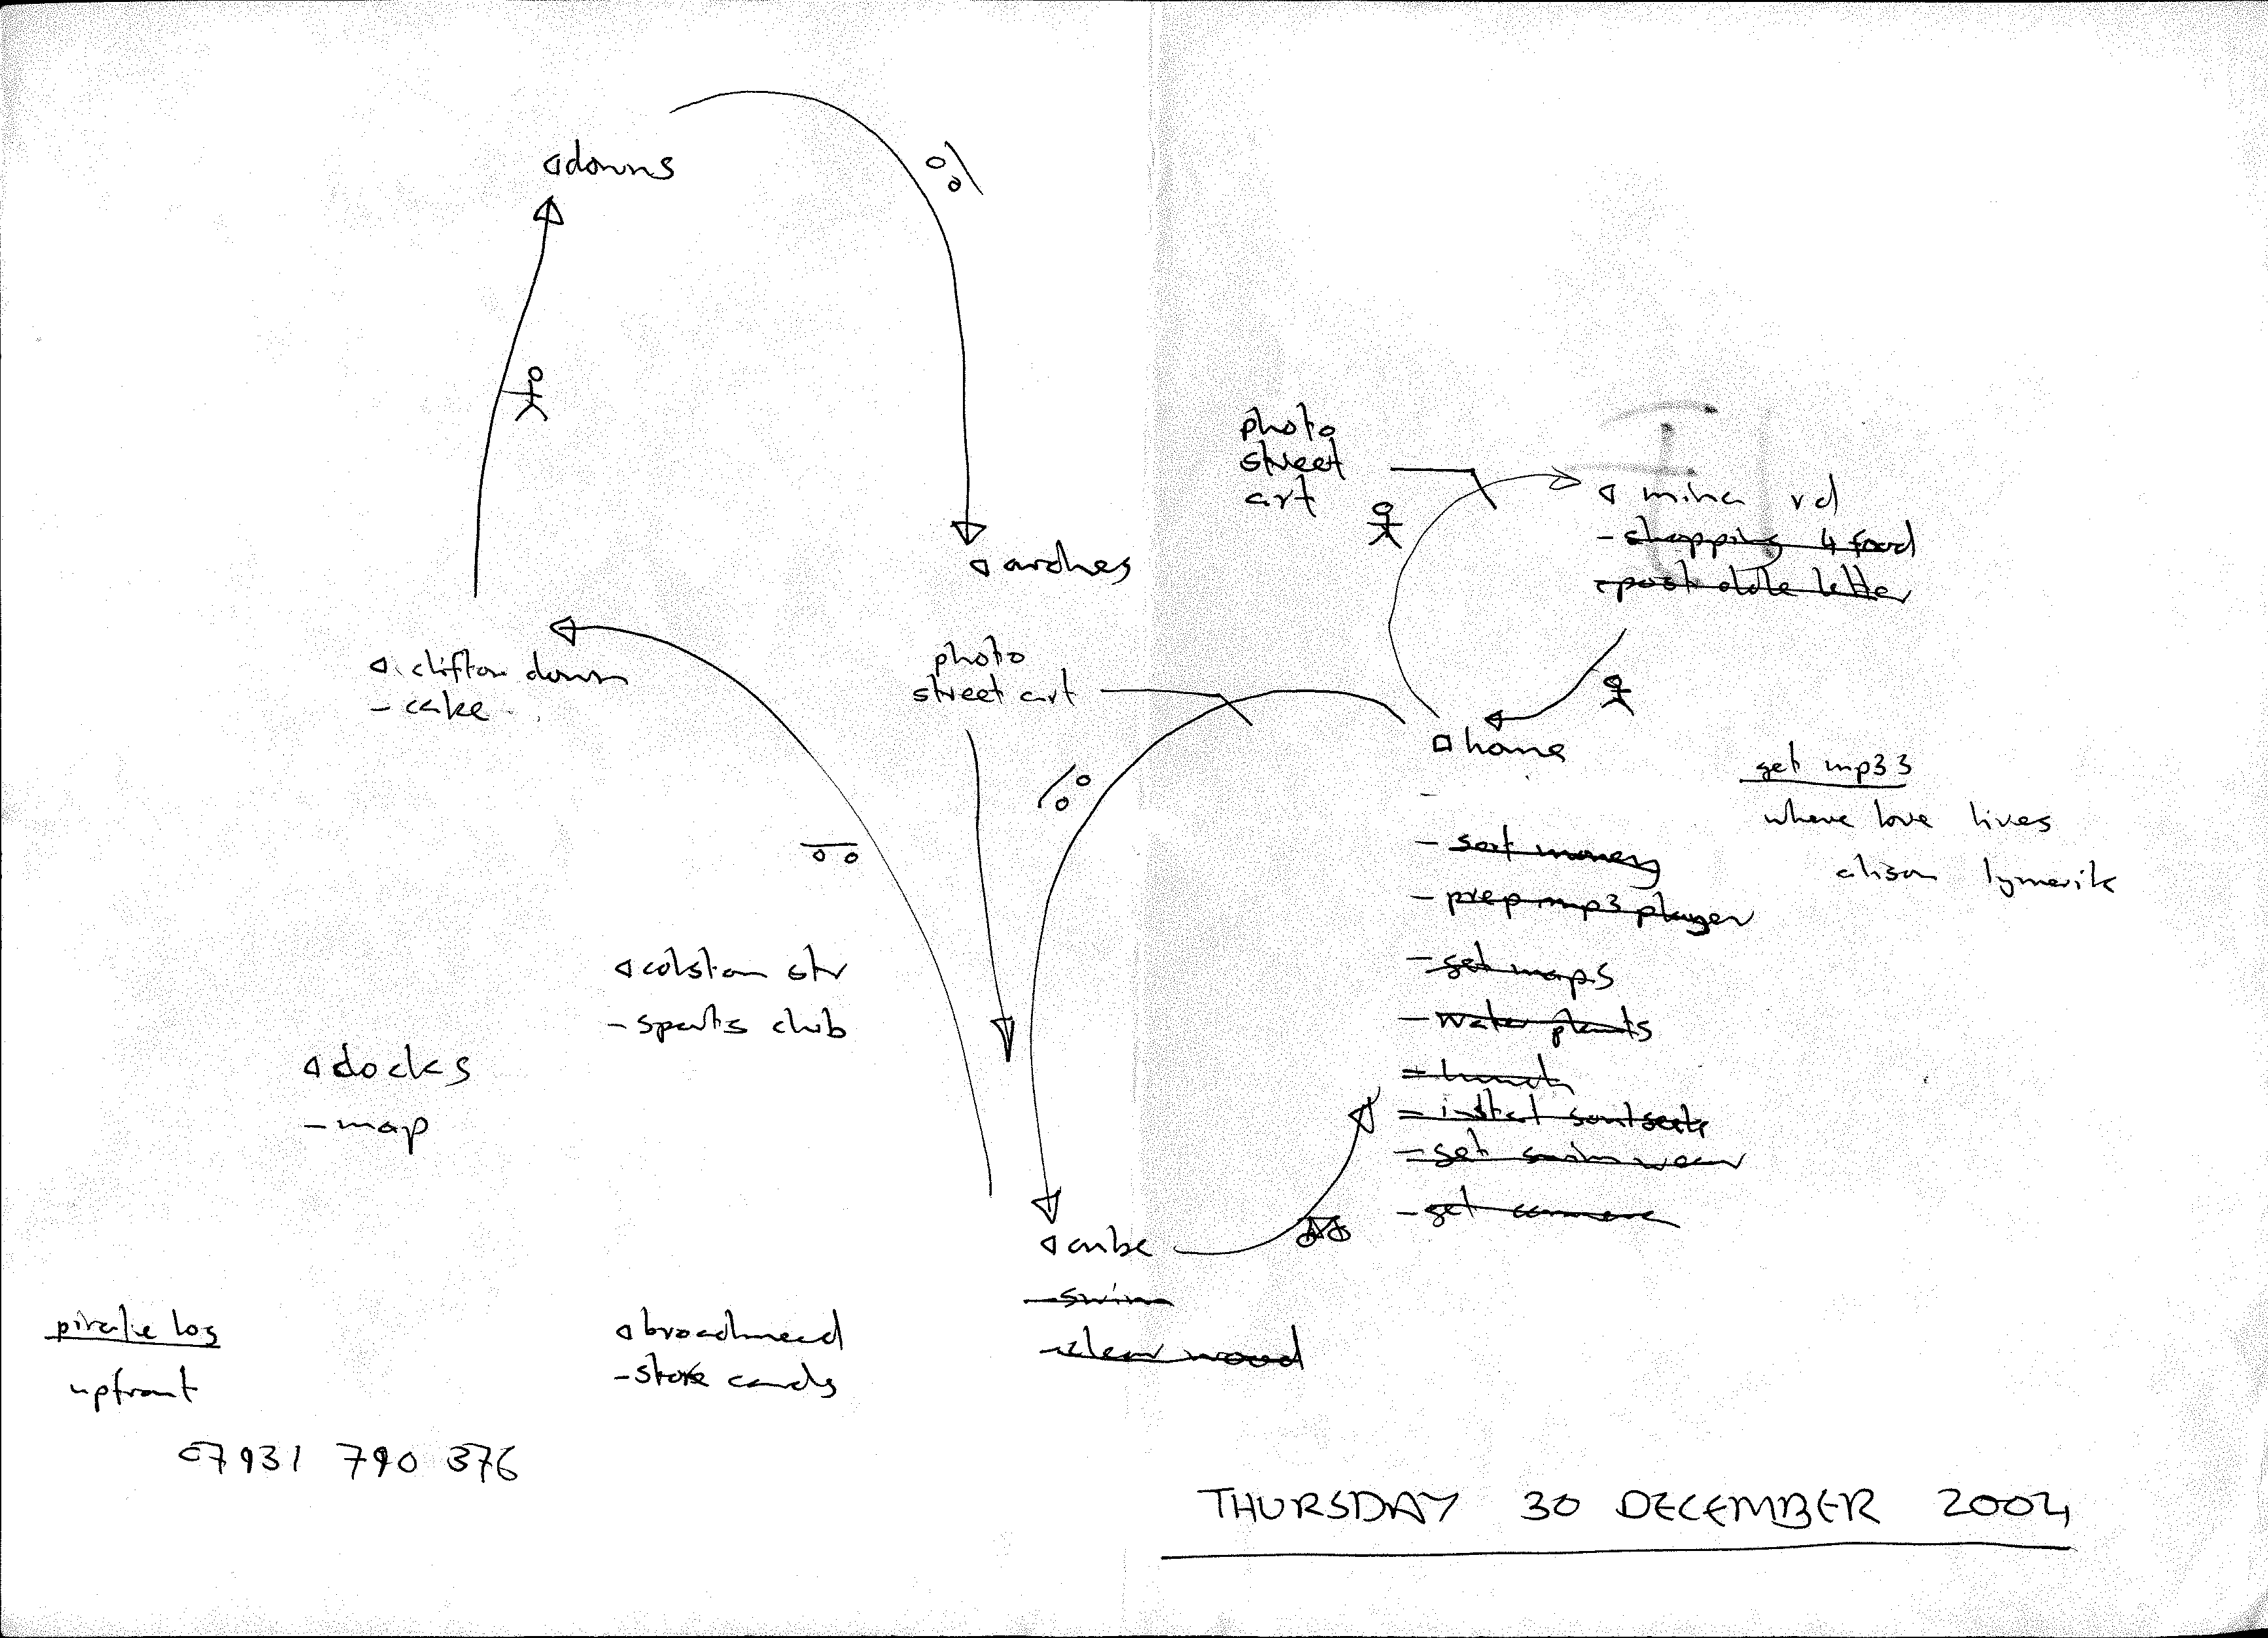 downs
arches
clifton down
- cake
photo
street art
photo
street
art
mina rd
- shopping 4 food
- post dole letter
home
-
- sort money
- prep mp3 player
- get maps
- water plants
- lunch
- instal soulseek
- get swim wear
- get camera
get mp3 3
where love lives
alison lymerik
colston str
- sports club
docks
- map
cube
- swim
- clear wood
broadmead
- store cards
pirate log
upfront
07931 790 376
THURSDAY 30 DECEMBER 2004